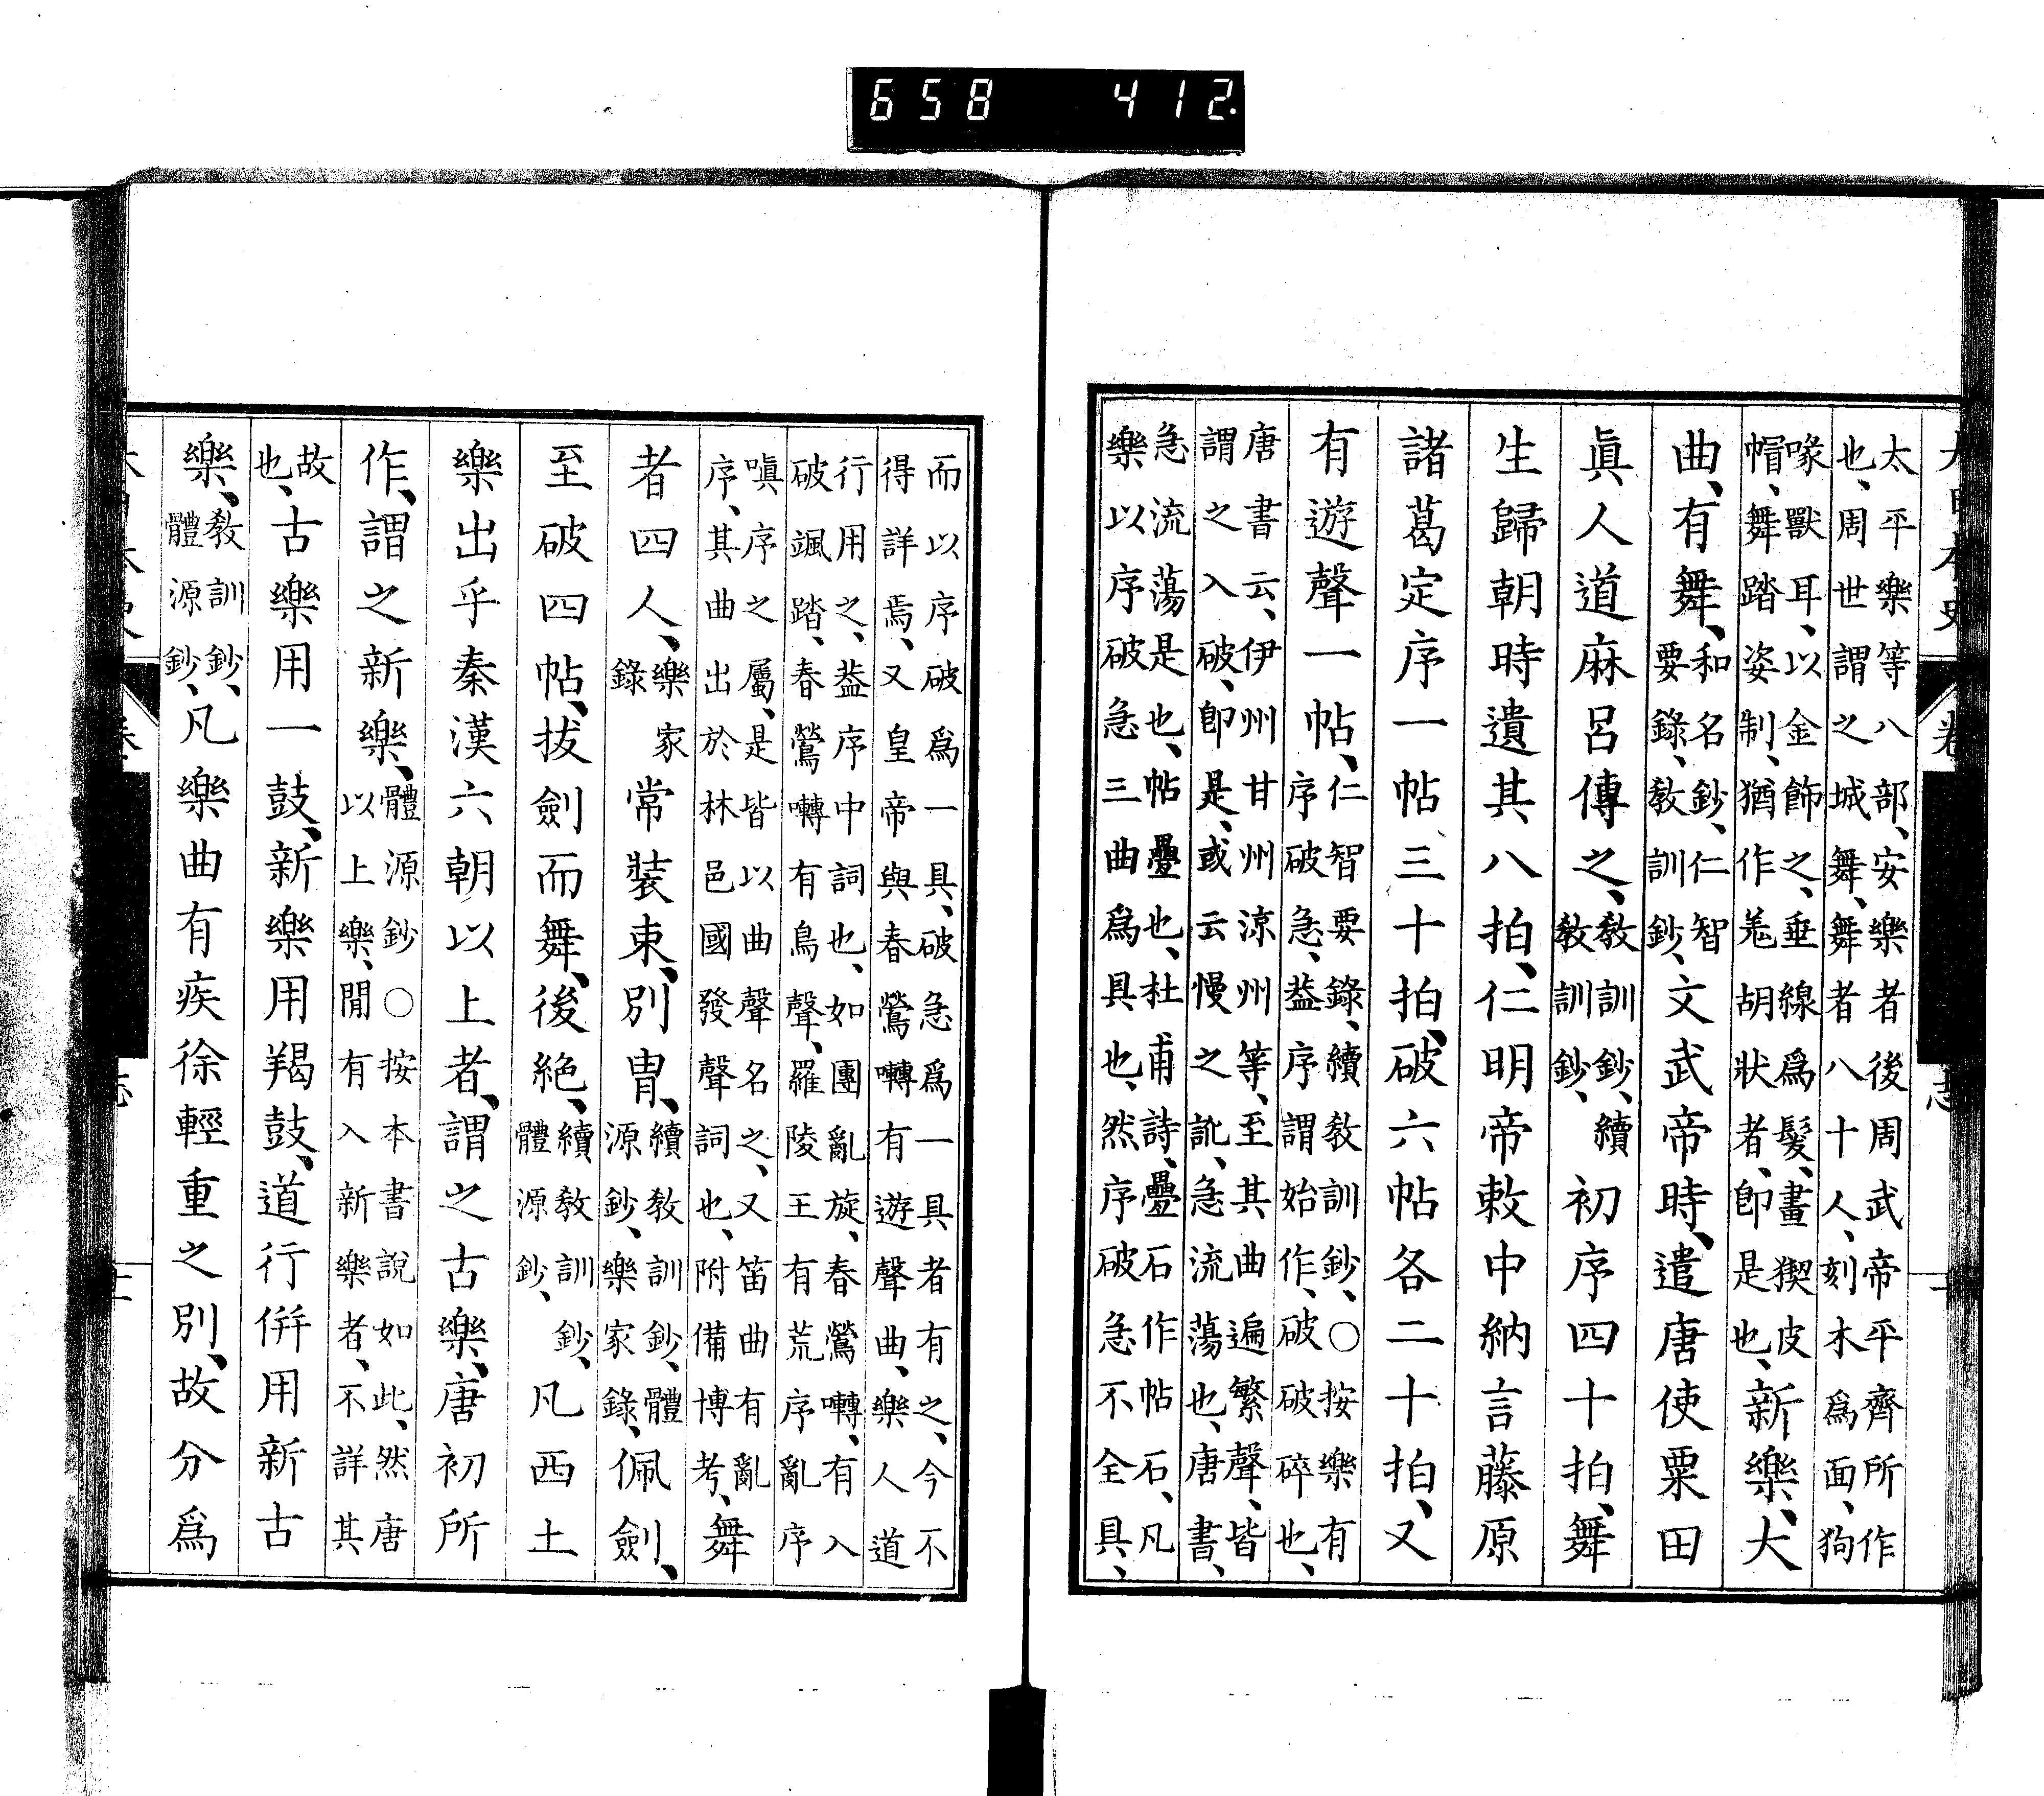 658 412
太平樂等八部、安樂者後周武帝平齊所作
也、周世謂之城舞、舞者八十人、刻木爲面、狗
喙獸耳、以金飾之、垂線爲髮、畫猰皮
帽、舞踏姿制、猶作羗胡狀者、卽是也、新樂、大
曲、有舞、和名鈔、仁智
要錄、敎訓鈔、文武帝時、遣唐使粟田
眞人道麻呂傳之、敎訓鈔、續
敎訓鈔、初序四十拍、舞
生歸朝時遺其八拍、仁明帝敕中納言藤原
諸葛定序一帖三十拍、破六帖各二十拍、又
有遊聲一帖、仁智要錄、續敎訓鈔、○按樂有
序破急、葢序謂始作、破破碎也、
唐書云、伊州甘州涼州等、至其曲遍繁聲、皆
謂之入破、卽是、或云慢之訛、急流蕩也、唐書、
急流蕩是也、帖疊也、杜甫詩、疊石作帖石、凡
樂以序破急三曲爲具也、然序破急不全具、
而以序破爲一具、破急爲一具者有之、今不
得詳焉、又皇帝與春鶯囀有遊聲曲、樂人道
行用之、葢序中詞也、如團亂旋、春鶯囀、有入
破颯踏、春鶯囀有鳥聲、羅陵王有荒序亂序
嗔序之屬、是皆以曲聲名之、又笛曲有亂
序、其曲出於林邑國發聲詞也、附備博考、舞
者四人、樂家
錄常裝束、別冑、續敎訓鈔、體
源鈔、樂家錄、佩劍、
至破四帖、拔劍而舞、後絕、續敎訓鈔、
體源鈔、凡西土
樂出乎秦漢六朝以上者、謂之古樂、唐初所
作、謂之新樂、體源鈔○按本書說如此、然唐
以上樂、閒有入新樂者、不詳其
故
也、古樂用一鼓、新樂用羯鼓、道行併用新古
樂、敎訓鈔、
體源鈔、凡樂曲有疾徐輕重之別、故分爲